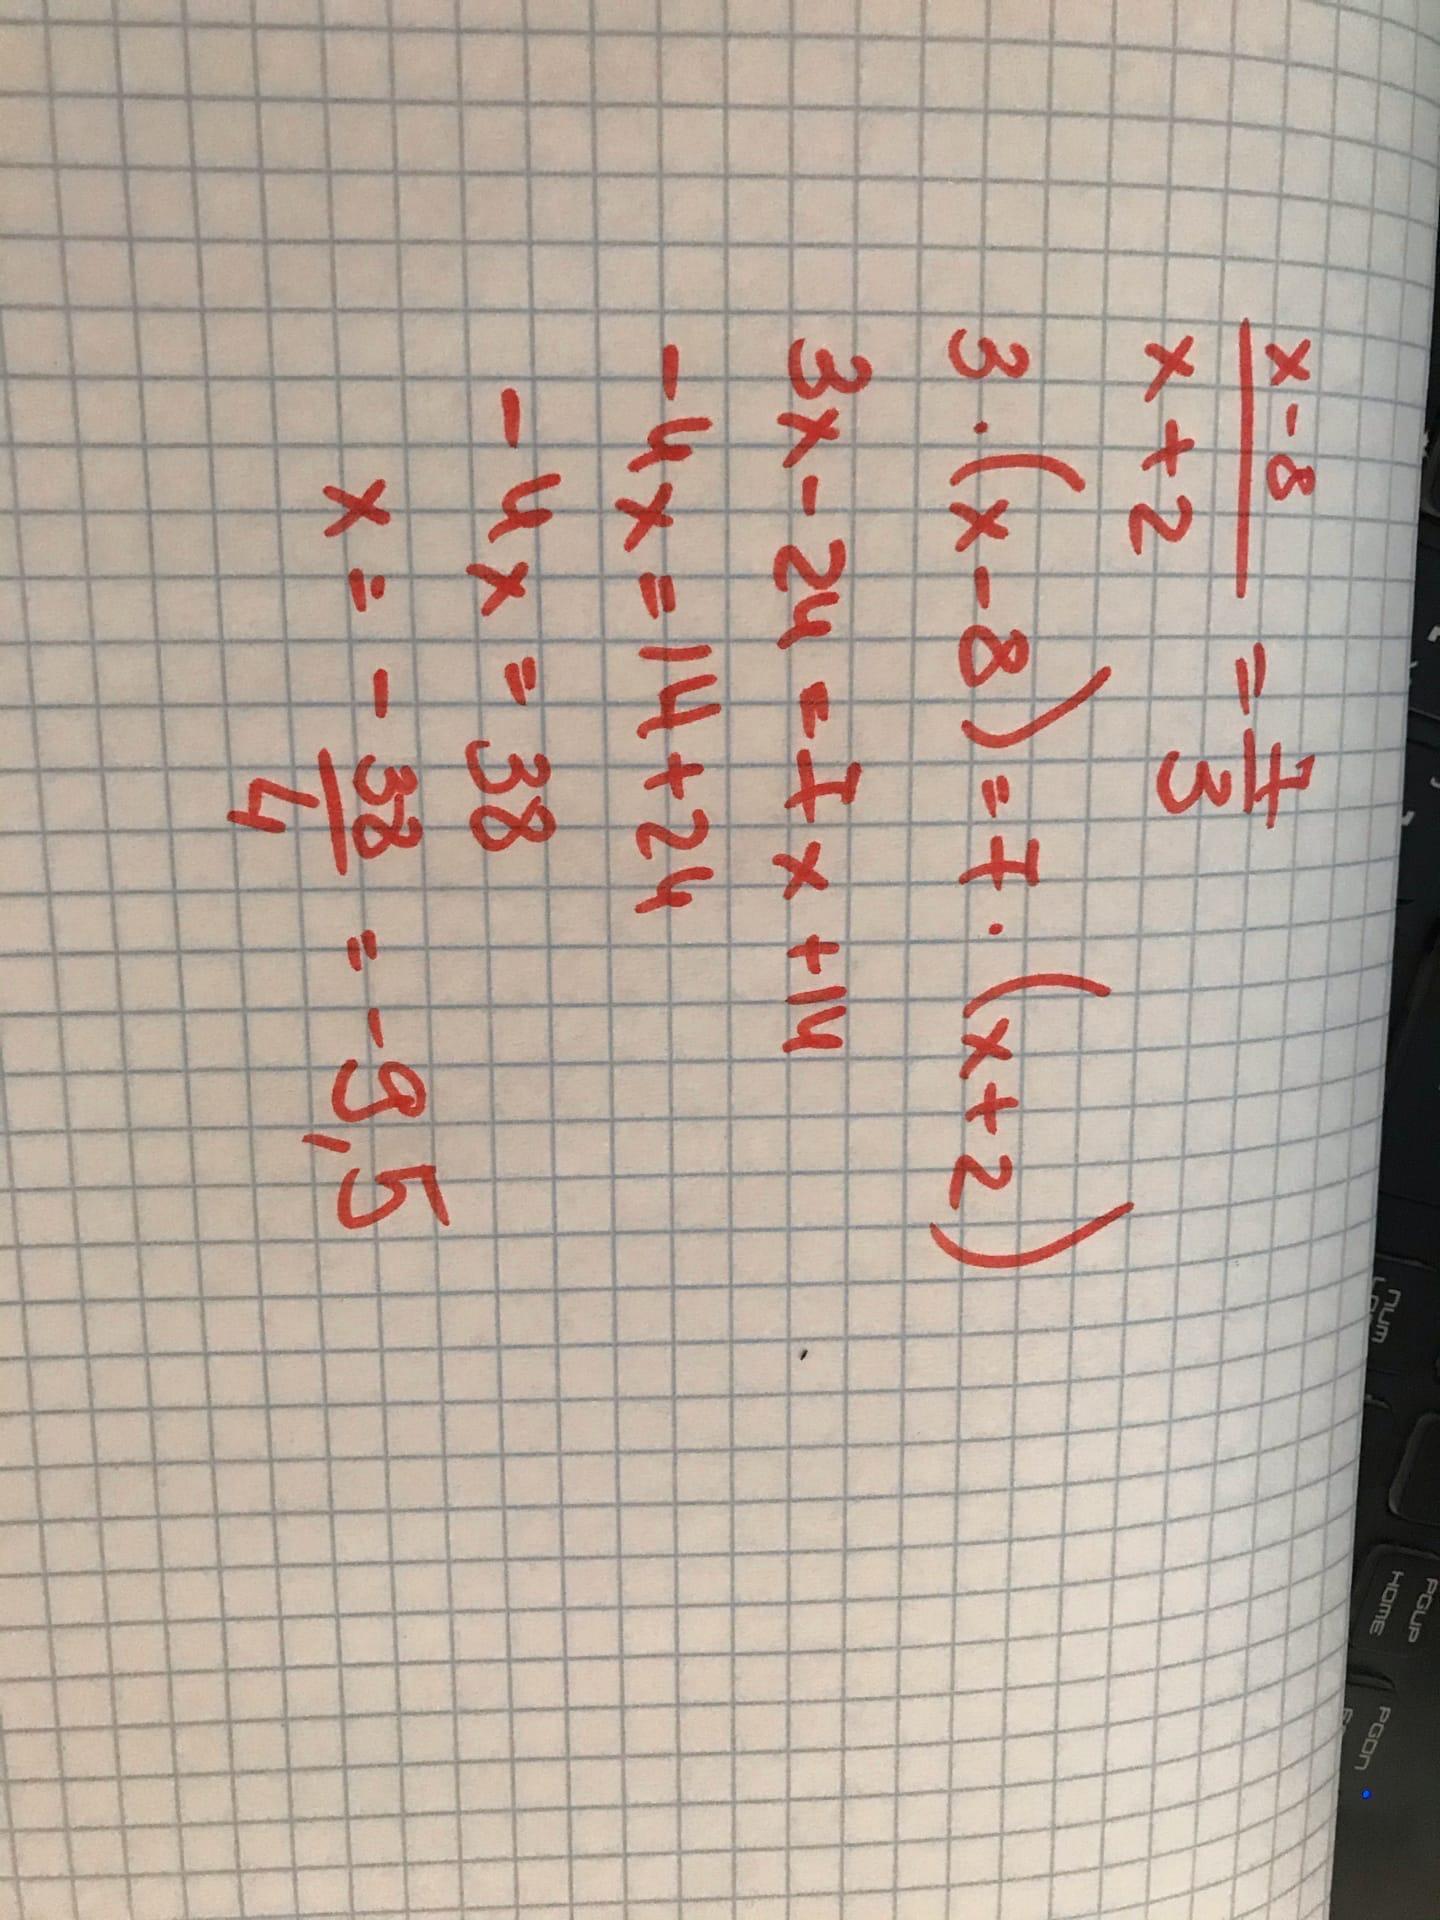 x-8/x+2 = 7/3
3·(x-8)=7·(x+2)
3x-24=7x+14
-4x=14+24
-4x=38
x=-38/4=-9,5
NUM
PGUP
HOME
PGDN